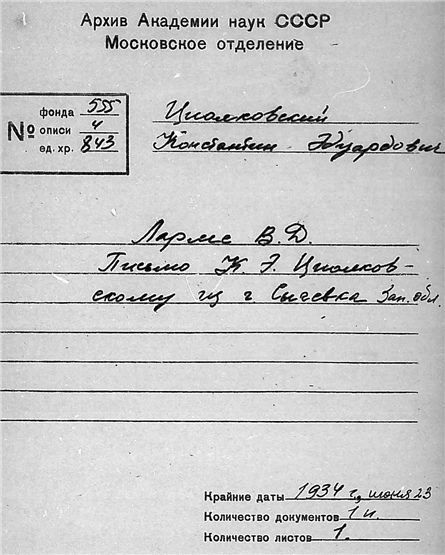 Архив Академии наук СССР
Московское отделение
№
фонда 555
описи 4
ед. хр. 843
Циолковский
Константин Эдуардович
В. Д.
Письмо К. Э. Циолков-
скому из г. Сычевка Зап. обл.
Крайние даты 1934 г., июня 23
Количество документов 1 п.
Количество листов 1.